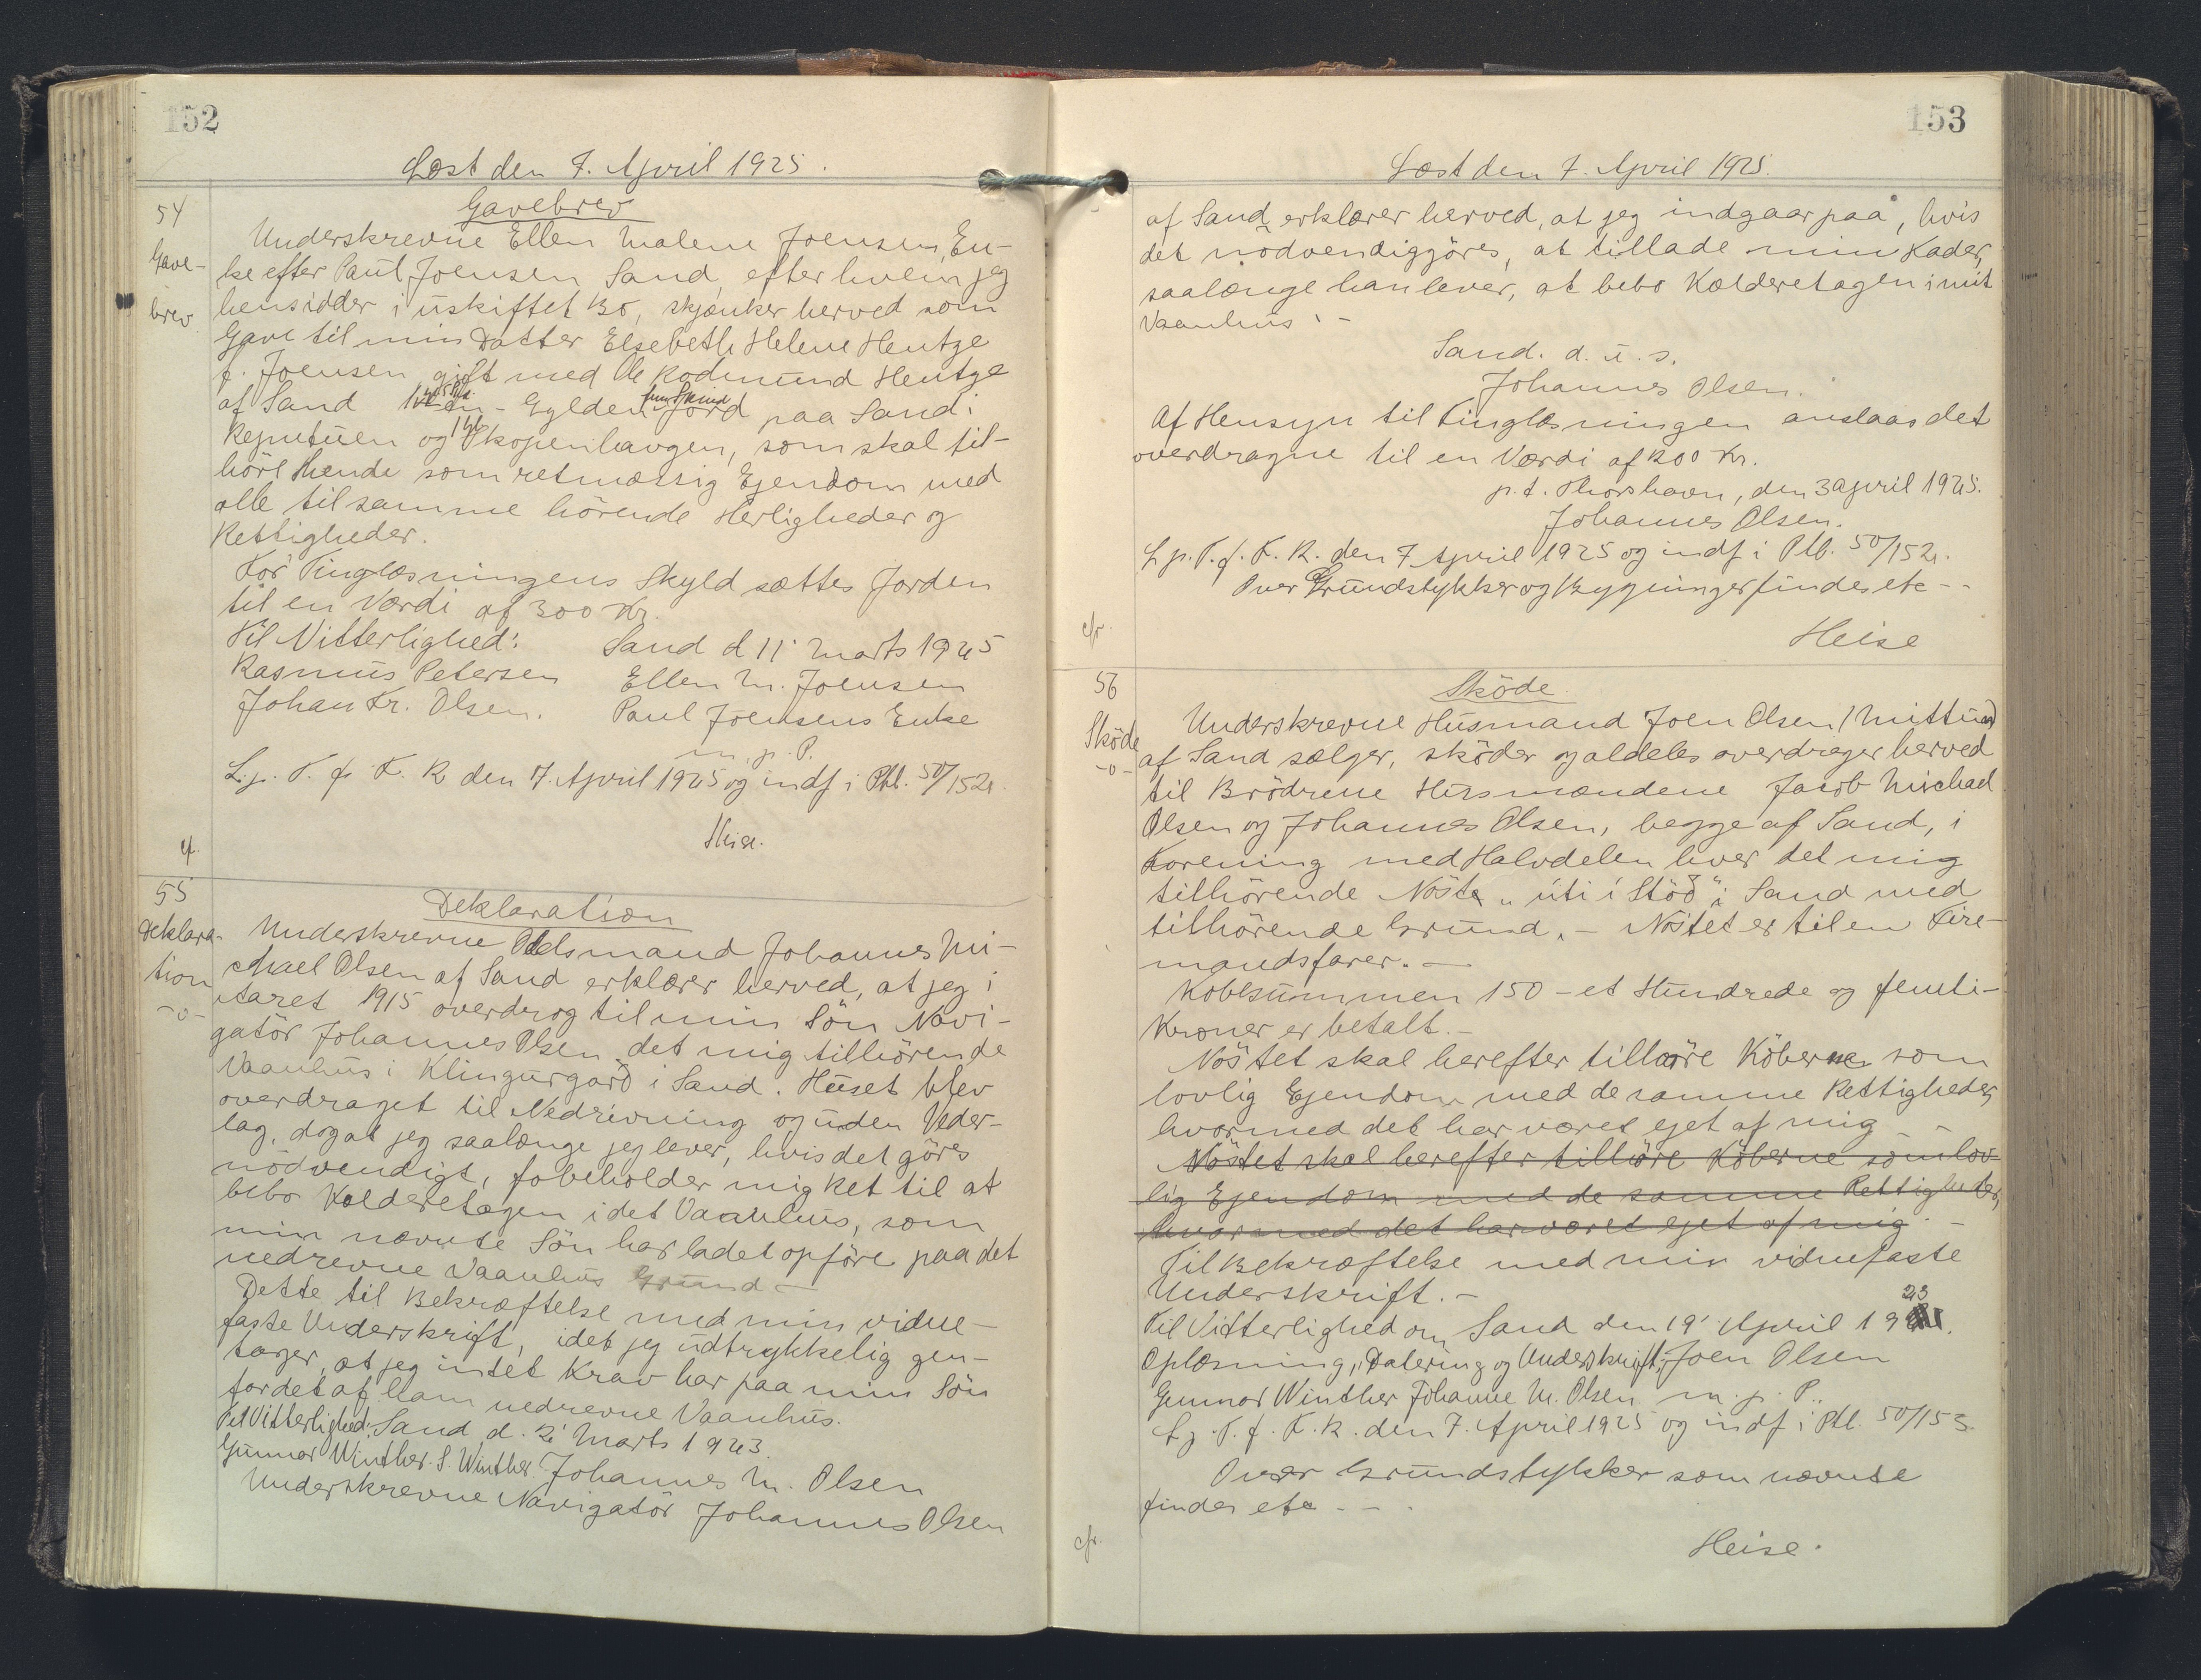 152
Læst den 7. April 1925.
54
Gave-
brev
Gavebrev
Underskrevne Ellen Malene Joensen, En-
ke efter Paul Joensen Sand, efter hvem jeg
hensidder i uskiftet Bo, skjænker herved som
Gave til min Datter Elsebeth Helene Hentze
f. Joensen gift med Ole Rodmund Hentze
af Sand en - Gylden fem Skind Jord paa Sand i
og Skopenhavgen, som skal til-
høre Hende som retmæssig Ejendom med
alle til samme hörende Herligheder og
Rettigheder.
For Tinglæsningens Skyld sættes Jorden
til en Værdi af 300 Kr.
Til Vitterlighed: Sand d 11' Marts 1925
Rasmus Petersen Ellen M. Joensen
Johan Kr. Olsen. Paul Joensens Enke
m. p. P.
L. p. T. f. F. R den 7. April 1925 og indf i Ptl. 50/152.
Heise.
cfr.
55
Deklara-
tion
-o-
Deklaration
Underskrevne Odelsmand Johannes Mi-
chael Olsen af Sand erklærer herved, at jeg i
Aaret 1915 overdrog til min Sön Navi-
gatör Johannes Olsen det mig tilhörende
Vaanhus i Klingurgarð i Sand. Huset blev
overdraget til Nedrivning og uden Veder-
lag, dog at jeg saalænge jeg lever, hvis det görs
nödvendigt, fobeholder mig Ret til at
bebo Kælderetagen i det Vaanhus, som
min nævnte Sön har ladet opföre paa det
nedrevne Vaanhus Grund -
Dette til Bekræftelse med min vidne-
faste Underskrift, idet jeg udtrykkelig gen-
tager, at jeg intet Krav har paa min Sön
for det af Ham nedrevne Vaanhus.
Til Vitterlighed: Sand d. Marts 1923
Gunnar Winther. S. Winther. Johannes M. Olsen
Underskrevne Navigatör Johannes Olsen
153
Læst den 7. April 1925.
af Sand, erklærer herved, at jeg indgaar paa, hvis
det nödvendiggjöres, at tillade min Fader,
saalænge han lever, at bebo Kælderetagen i mit
Vaanhus. -
Sand. d. u. s.
Johannes Olsen.
Af Hensyn til Tinglæsningen anslaas det
overdragne til en Værdi af 1200 Kr.
p. t. Thorshavn, den 3 april 1925.
Johannes Olsen.
L. p. T. f. F. R. den 7 April 1925 og indf i Ptl. 50/152.
Over Grundstykker og Bygninger findes etc - -
cfr.
Heise
56
Sköde
-o-
Sköde
Underskrevne Husmand Joen Olsen (Mittun)
af Sand sælger, sköder og aldeles overdrager herved
til Brödrene Husmændene Jacob Michael
Olsen og Johannes Olsen, begge af Sand, i
Forening med Halvdelen hver det mig
tilhörende Nöste „úti í Støð“ i Sand med
tilhörende Grund. - Nöstet er til en Fire-
mandsfarer. -
Köbesummen 150 - et Hundrede og femti-
Kroner er betalt. -
Nöstet skal herefter tilhöre Köberne som
lovlig Ejendom med de samme Rettigheder,
hvormed det har været ejet af mig - -
Nöstet skal herefter tilhöre Köberne som lov-
lig Ejendom med de samme Rettigheder,
hvormed det har været ejet af mig. -
Til Bekræftelse med min vidnefaste
Underskrift. -
Til Vitterlighed om Sand den 19' April 1923.
Oplæsning, Datering og Underskrift: Joen Olsen
Gunnar Winther Johanne M. Olsen m. p. P..
L. p. T. f. F. R. den 7. April 1925 og indf i Ptl. 50/153.
Over Grundstykker som nævnte
findes etc - - .
cfr.
Heise.